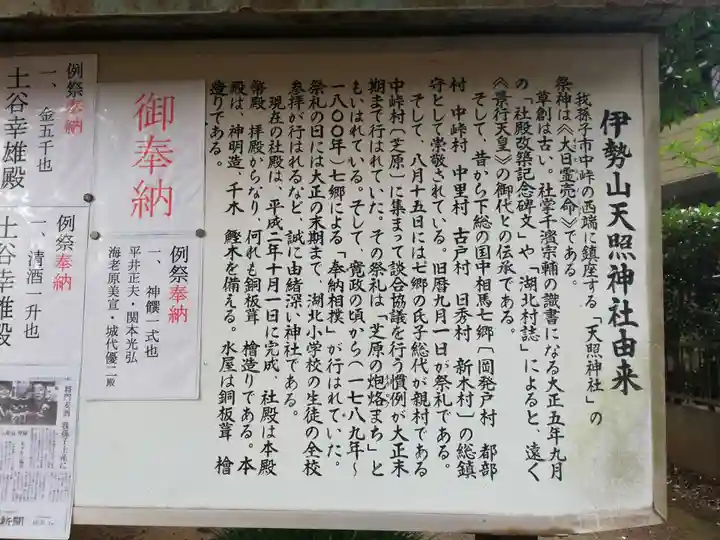 伊勢山天照神社由来
我孫子市中峠の西端に鎮座する「天照神社」の
祭神は《大日霊売命》である。
草創は古い。社掌千濱宗輔の識書になる大正五年九月
の「社殿改築記念碑文」や「湖北村誌」によると、遠く
《景行天皇》の御代との伝承である。
そして、昔から下総の国中相馬七郷〔岡発戸村 都部
村 中峠村 中里村 古戸村 日秀村 新木村〕の総鎮
守として崇敬されている。旧暦九月一日が祭礼である。
そして、八月十五日には七郷の氏子総代が親村である
中峠村〔芝原〕に集まって談合協議を行う慣例が大正末
期まで行はれていた。その祭礼は「芝原の炮烙まち」と
もいはれている。そして、寛政の頃から(一七八九年～
一八〇〇年)七郷による「奉納相撲」が行はれていた。
祭礼の日には大正の末期まで、湖北小学校の生徒の全校
参拝が行はれるなど、誠に由緒深い神社である。
現在の社殿は、平成二年十月一日に完成、社殿は本殿
幣殿、拝殿からなり、何れも銅板葺 檜造りである。本
殿は、神明造、千木 鰹木を備える。水屋は銅板葺 檜
造りである。
御奉納
例祭奉納
一、神饌一式也
平井正夫・関本光弘
海老原美宣・城代優二殿
例祭奉納
一、金五千也
土谷幸雄殿
例祭奉納
一、清酒一升也
土谷幸雄殿
新聞